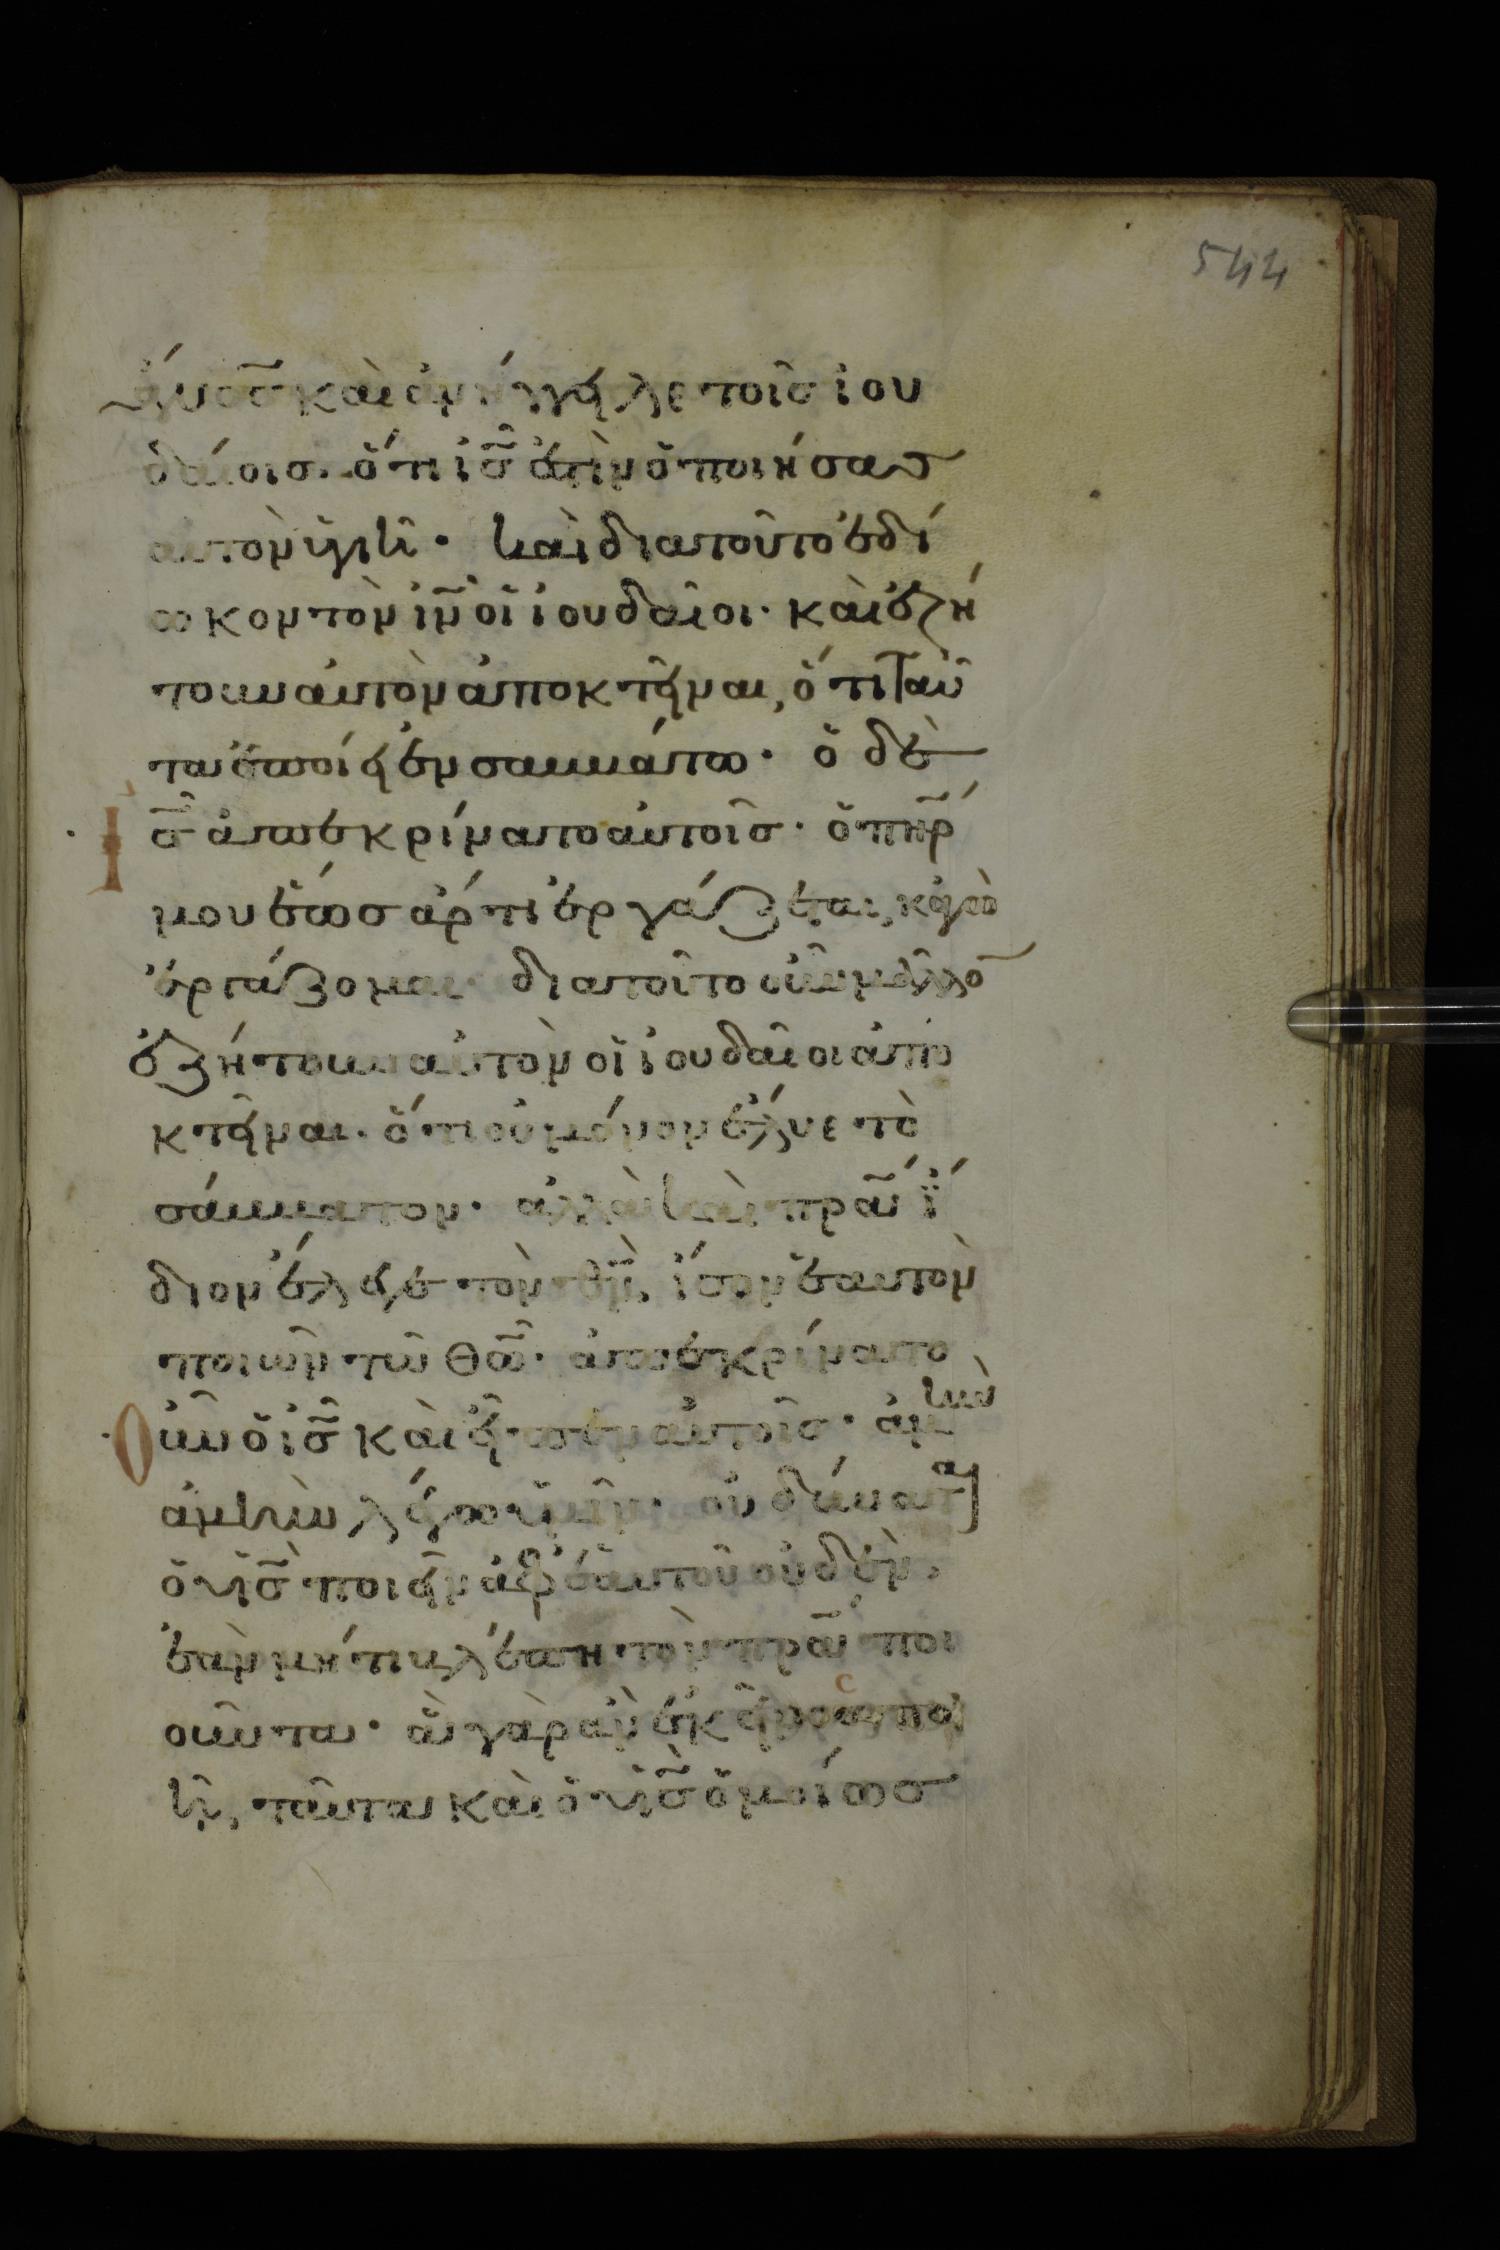 544
ἄνο̅σ̅ καὶ ἀνήγγειλε τοῖς ἰου
δαίοις. ὅτι ι̅ς̅ ἐστὶν ὁ ποιήσας
αὐτὸν ὑγιῆ· καὶ διατοῦτο ἐδί
ωκον τὸν ι̅ν̅ οἱ ἰουδαῖοι· καὶ ἐζή
τουν αὐτὸν ἀποκτεῖναι, ὅτι ταῦ
τα ἐποίει ἐν σαββάτω· ὁ δὲ
Ι̅ς̅ ἀπεκρίνατο αὐτοῖς· ὁ π̅η̅ρ̅
μου ἕως ἄρτι ἐργάζεται, κἀγὼ
ἐργάζομαι· διατοῦτο οὖν μᾶλλο̅
ἐζήτουν αὐτὸν οἱ ἰουδαῖοι ἀπο
κτεῖναι· ὅτι οὐ μόνον ἔλυε τὸ
σάββατον· ἀλλὰ καὶ π̅ρ̅α̅ ἴ
διον ἔλεγε τὸν θ̅ν̅, ἴσον ἑαυτὸν
ποιῶν τῶ θ̅ω̅· ἀπεκρίνατο
Οὖν ὁ ι̅ς̅ καὶ εἶπεν αὐτοῖς· ἀμὴν
ἀμὴν λέγω ὑμῖν· οὐ δύναται
ὁ υ̅ι̅ς̅ ποιεῖν ἀφ' ἑαυτοῦ οὐδέν,
ἐὰν μή τι βλέπη τὸν π̅ρ̅α̅ ποι
οῦντα· ἃ γὰρ ἂν ἐκεῖνος ποι
ῆ, ταῦτα καὶ ὁ υ̅ι̅ς̅ ὁμοίως